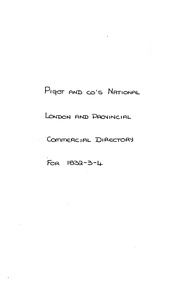 Pigot and Co's National
London and Provincial
Commercial Directory
For 1832-3-4